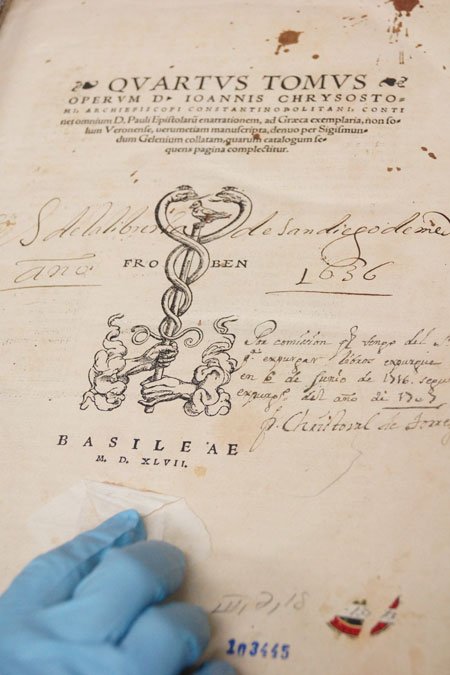 QVARTVS TOMVS
OPERVM D. IOANNIS CHRYSOSTO-
MI, ARCHIEPISCOPI CONSTANTINOPOLITANI, CONTI
net omnium D. Pauli Epistolarũ enarrationem, ad Græca exemplaria, non so-
lum Veronense, uerumetiam manuscripta, denuo per Sigismun-
dum Gelenium collatam, quarum catalogum se-
quens pagina complectitur.
S de la libreria de San diego de
año 1636
FRO BEN
Por comission q tengo del
expurgar libros expurgue
en 6 de Junio de 1716 segun
expurg° del año de 1707
Christoval de
BASILEAE
M. D. XLVII.
103445